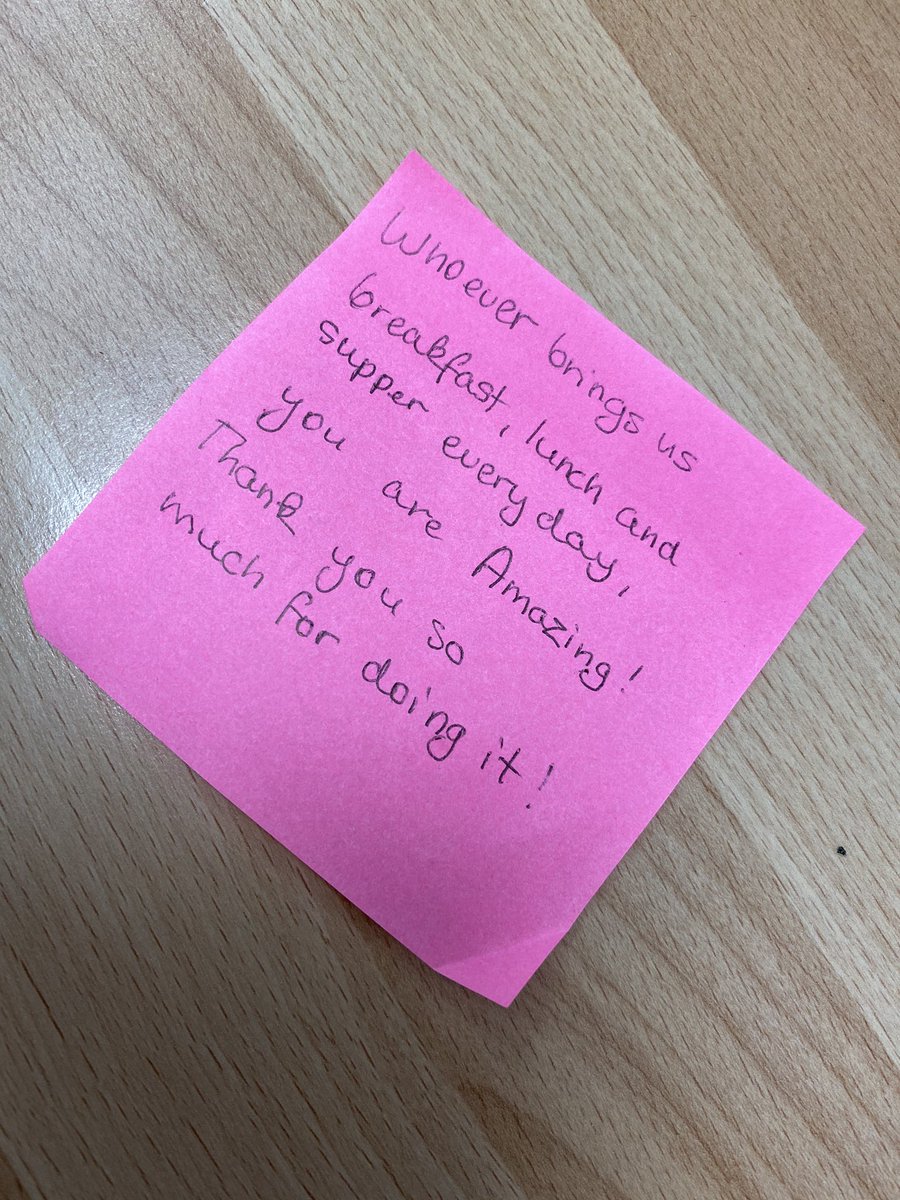 Whoever brings us
breakfast, lunch and
supper everyday,
you are Amazing!
Thank you so
much for doing it!